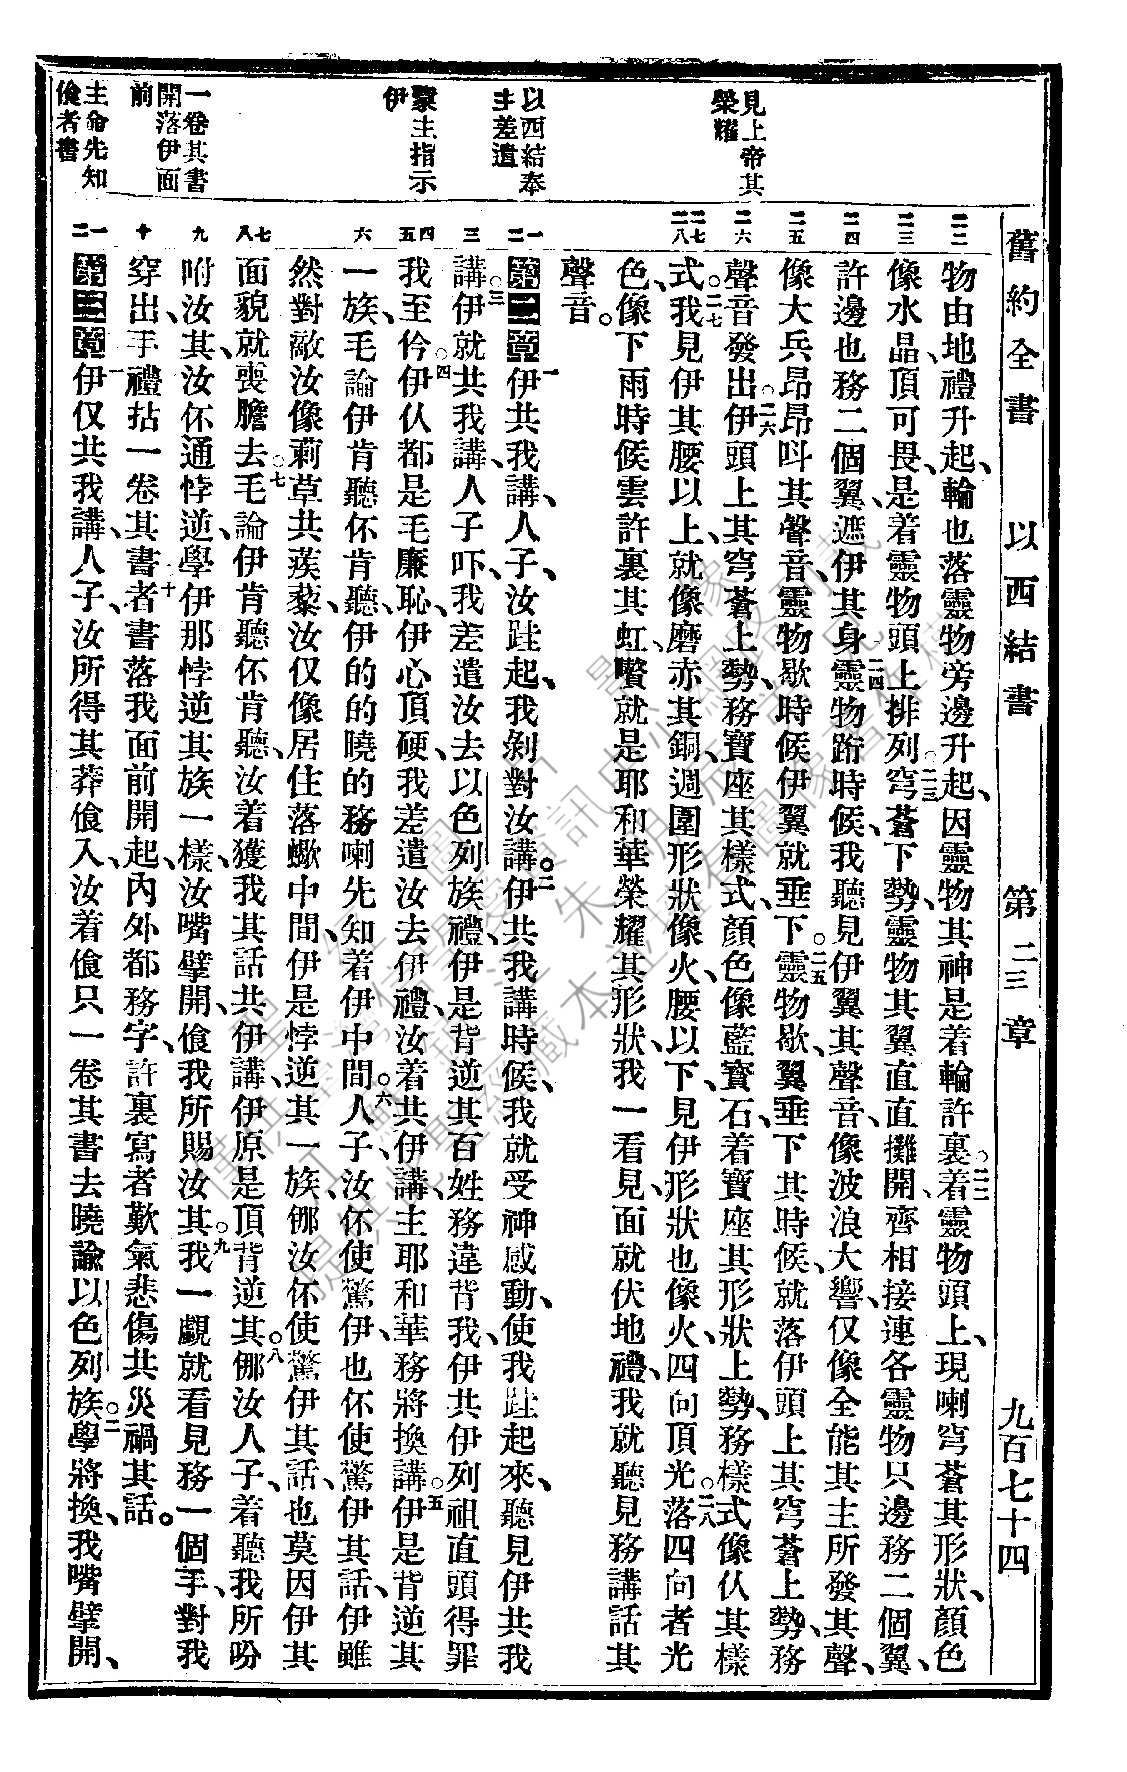 舊約全書　以西結書　第二三章　九百七十四
見上帝其
榮耀
以西結奉
主差遣
蒙主指示
伊
一卷其書
開落伊面
前
主命先知
儉者書
二二
二三
二四
二五
二六
二七 二八
一 二
三
四 五
六
七 八
九
十
一 二
物由地禮升起、輪也落靈物旁邊升起、因靈物其神是着輪許裏。○二二着靈物頭上、現喇穹蒼其形狀、顏色
像水晶、頂可畏、是着靈物頭上排列。○二三穹蒼下勢、靈物其翼直直攤開、齊相接連、各靈物只邊務二個翼、
許邊也務二個翼、遮伊其身。二四靈物跲時候、我聽見伊翼其聲音、像波浪大響、仅像全能其主所發其聲、
像大兵昂昂呌其聲音、靈物歇時候、伊翼就垂下。○二五靈物歇、翼垂下其時候、就落伊頭上其穹蒼上勢、務
聲音發出。○二六伊頭上其穹蒼上勢、務寶座其樣式、顏色像藍寶石、着寶座其形狀上勢、務樣式像仈其樣
式。○二七我見伊其腰以上、就像磨赤其銅、週圍形狀像火、腰以下、見伊形狀也像火、四向頂光。○二八落四向者光
色、像下雨時候雲許裏其虹、嚽就是耶和華榮耀其形狀、我一看見、面就伏地禮、我就聽見務講話其
聲音。
第二章一伊共我講、人子、汝跬起、我剝對汝講。○二伊共我講時候、我就受神感動、使我跬起來、聽見伊共我
講。○三伊就共我講、人子吓、我差遣汝去以色列族禮、伊是背逆其百姓、務違背我、伊共伊列祖直頭得罪
我至仱。○四伊仈都是毛廉恥、伊心頂硬、我差遣汝去伊禮、汝着共伊講、主耶和華務將換講。○五伊是背逆其
一族、毛論伊肯聽伓肯聽、伊的的曉的務喇先知着伊中間。○六人子、汝伓使驚伊、也伓使驚伊其話、伊雖
然對敵汝像莿草共蒺藜、汝仅像居住落蠍中間、伊是悖逆其一族、挪汝伓使驚伊其話、也莫因伊其
面貌就喪膽去。○七毛論伊肯聽伓肯聽、汝着獲我其話共伊講、伊原是頂背逆其。○八挪汝人子、着聽我所吩
咐汝其、汝伓通悖逆、學伊那悖逆其族一樣、汝嘴擘開、儉我所賜汝其。○九我一覷就看見務一個手、對我
穿出、手禮拈一卷其書。十者書落我面前開起、內外都務字、許裏寫者歎氣悲傷共災禍其話。
第三章一伊仅共我講、人子、汝所得其莽儉入、汝着儉只一卷其書、去曉諭以色列族。○二學將換、我嘴擘開、